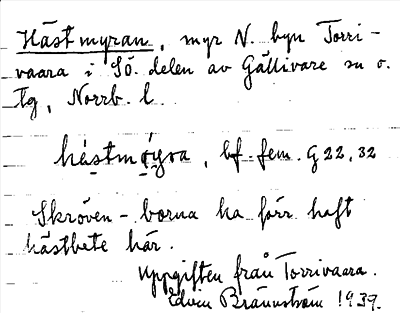 Hästmyran, myr N. byn Torri-
vaara i Sö. delen av Gällivare sn o.
tg, Norrb. l.
hästmøyra, bf. fem. G 22, 32
Skröven-borna ha förr haft
hästbete här.
Uppgiften från Torrivaara.
Edvin Brännström 1939.